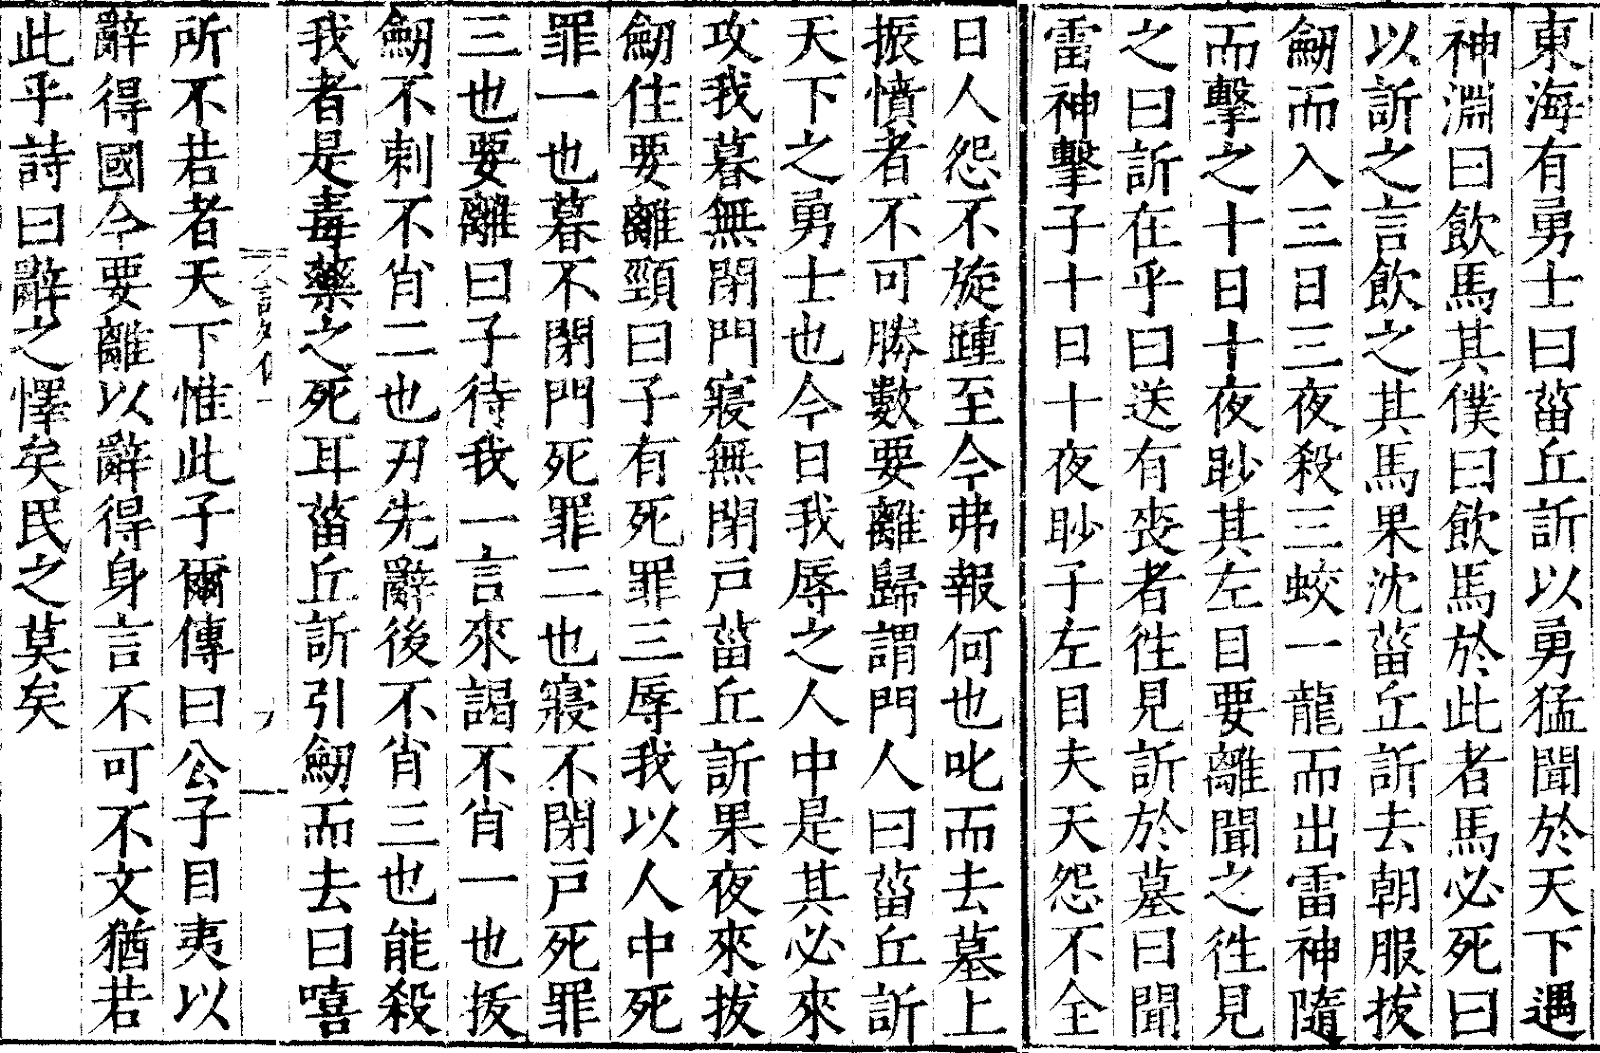 東海有勇士曰菑丘訢以勇猛聞於天下遇
神淵曰飲馬其僕曰飲馬於此者馬必死曰
以訢之言飲之其馬果沈菑丘訢去朝服拔
劒而入三日三夜殺三蛟一龍而出雷神隨
而擊之十日十夜眇其左目要離聞之徃見
之曰訢在乎曰送有喪者徃見訢於墓曰聞
雷神擊子十日十夜眇子左目夫天怨不全
日人怨不旋踵至今弗報何也叱而去墓上
振憤者不可勝數要離歸謂門人曰菑丘訢
天下之勇士也今日我辱之人中是其必來
攻我暮無閉門寢無閉戸菑丘訢果夜來拔
劒住要離頸曰子有死罪三辱我以人中死
罪一也暮不閉門死罪二也寢不閉戸死罪
三也要離曰子待我一言來謁不肖一也拔
劒不刺不肖二也刃先辭後不肖三也能殺
我者是毒藥之死耳菑丘訢引劒而去曰嘻
所不若者天下惟此子爾傳曰公子目夷以
辭得國今要離以辭得身言不可不文猶若
此乎詩曰辭之懌矣民之莫矣